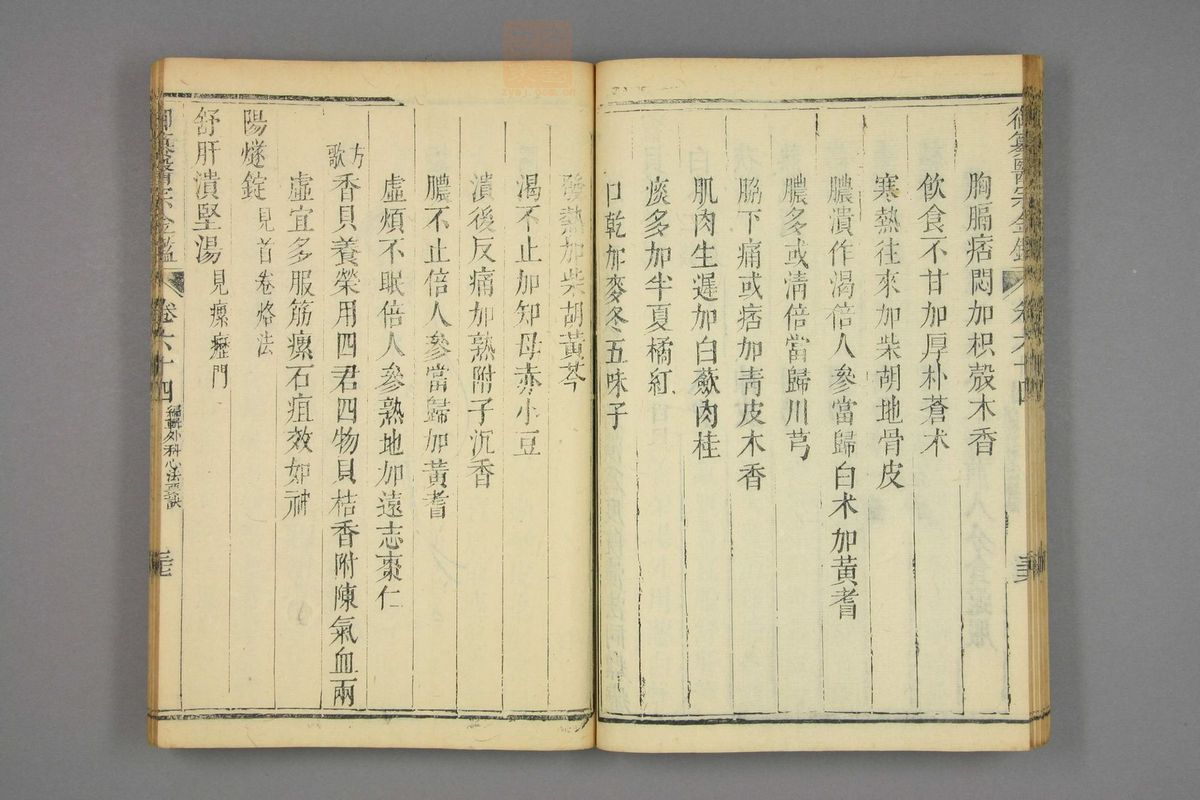 胸膈痞悶加枳殼木香
飲食不甘加厚朴蒼术
寒熱往來加柴胡地骨皮
膿潰作渴倍人參當歸白术加黃耆
膿多或清倍當歸川芎
脇下痛或痞加靑皮木香
肌肉生遲加白蘞肉桂
痰多加半夏橘紅
口乾加麥冬五味子
發熱加柴胡黃芩
渴不止加知母赤小豆
潰後反痛加熟附子沉香
膿不止倍人參當歸加黃耆
虛煩不眠倍人參熟地加遠志棗仁
方歌 香貝養榮用四君四物貝桔香附陳氣血兩
虛宜多服筋瘰石疽效如神
陽燧錠 見首卷烙法
舒肝潰堅湯 見瘰癧門
御纂醫宗金鑑 卷六十四 編輯外科心法要訣 三七